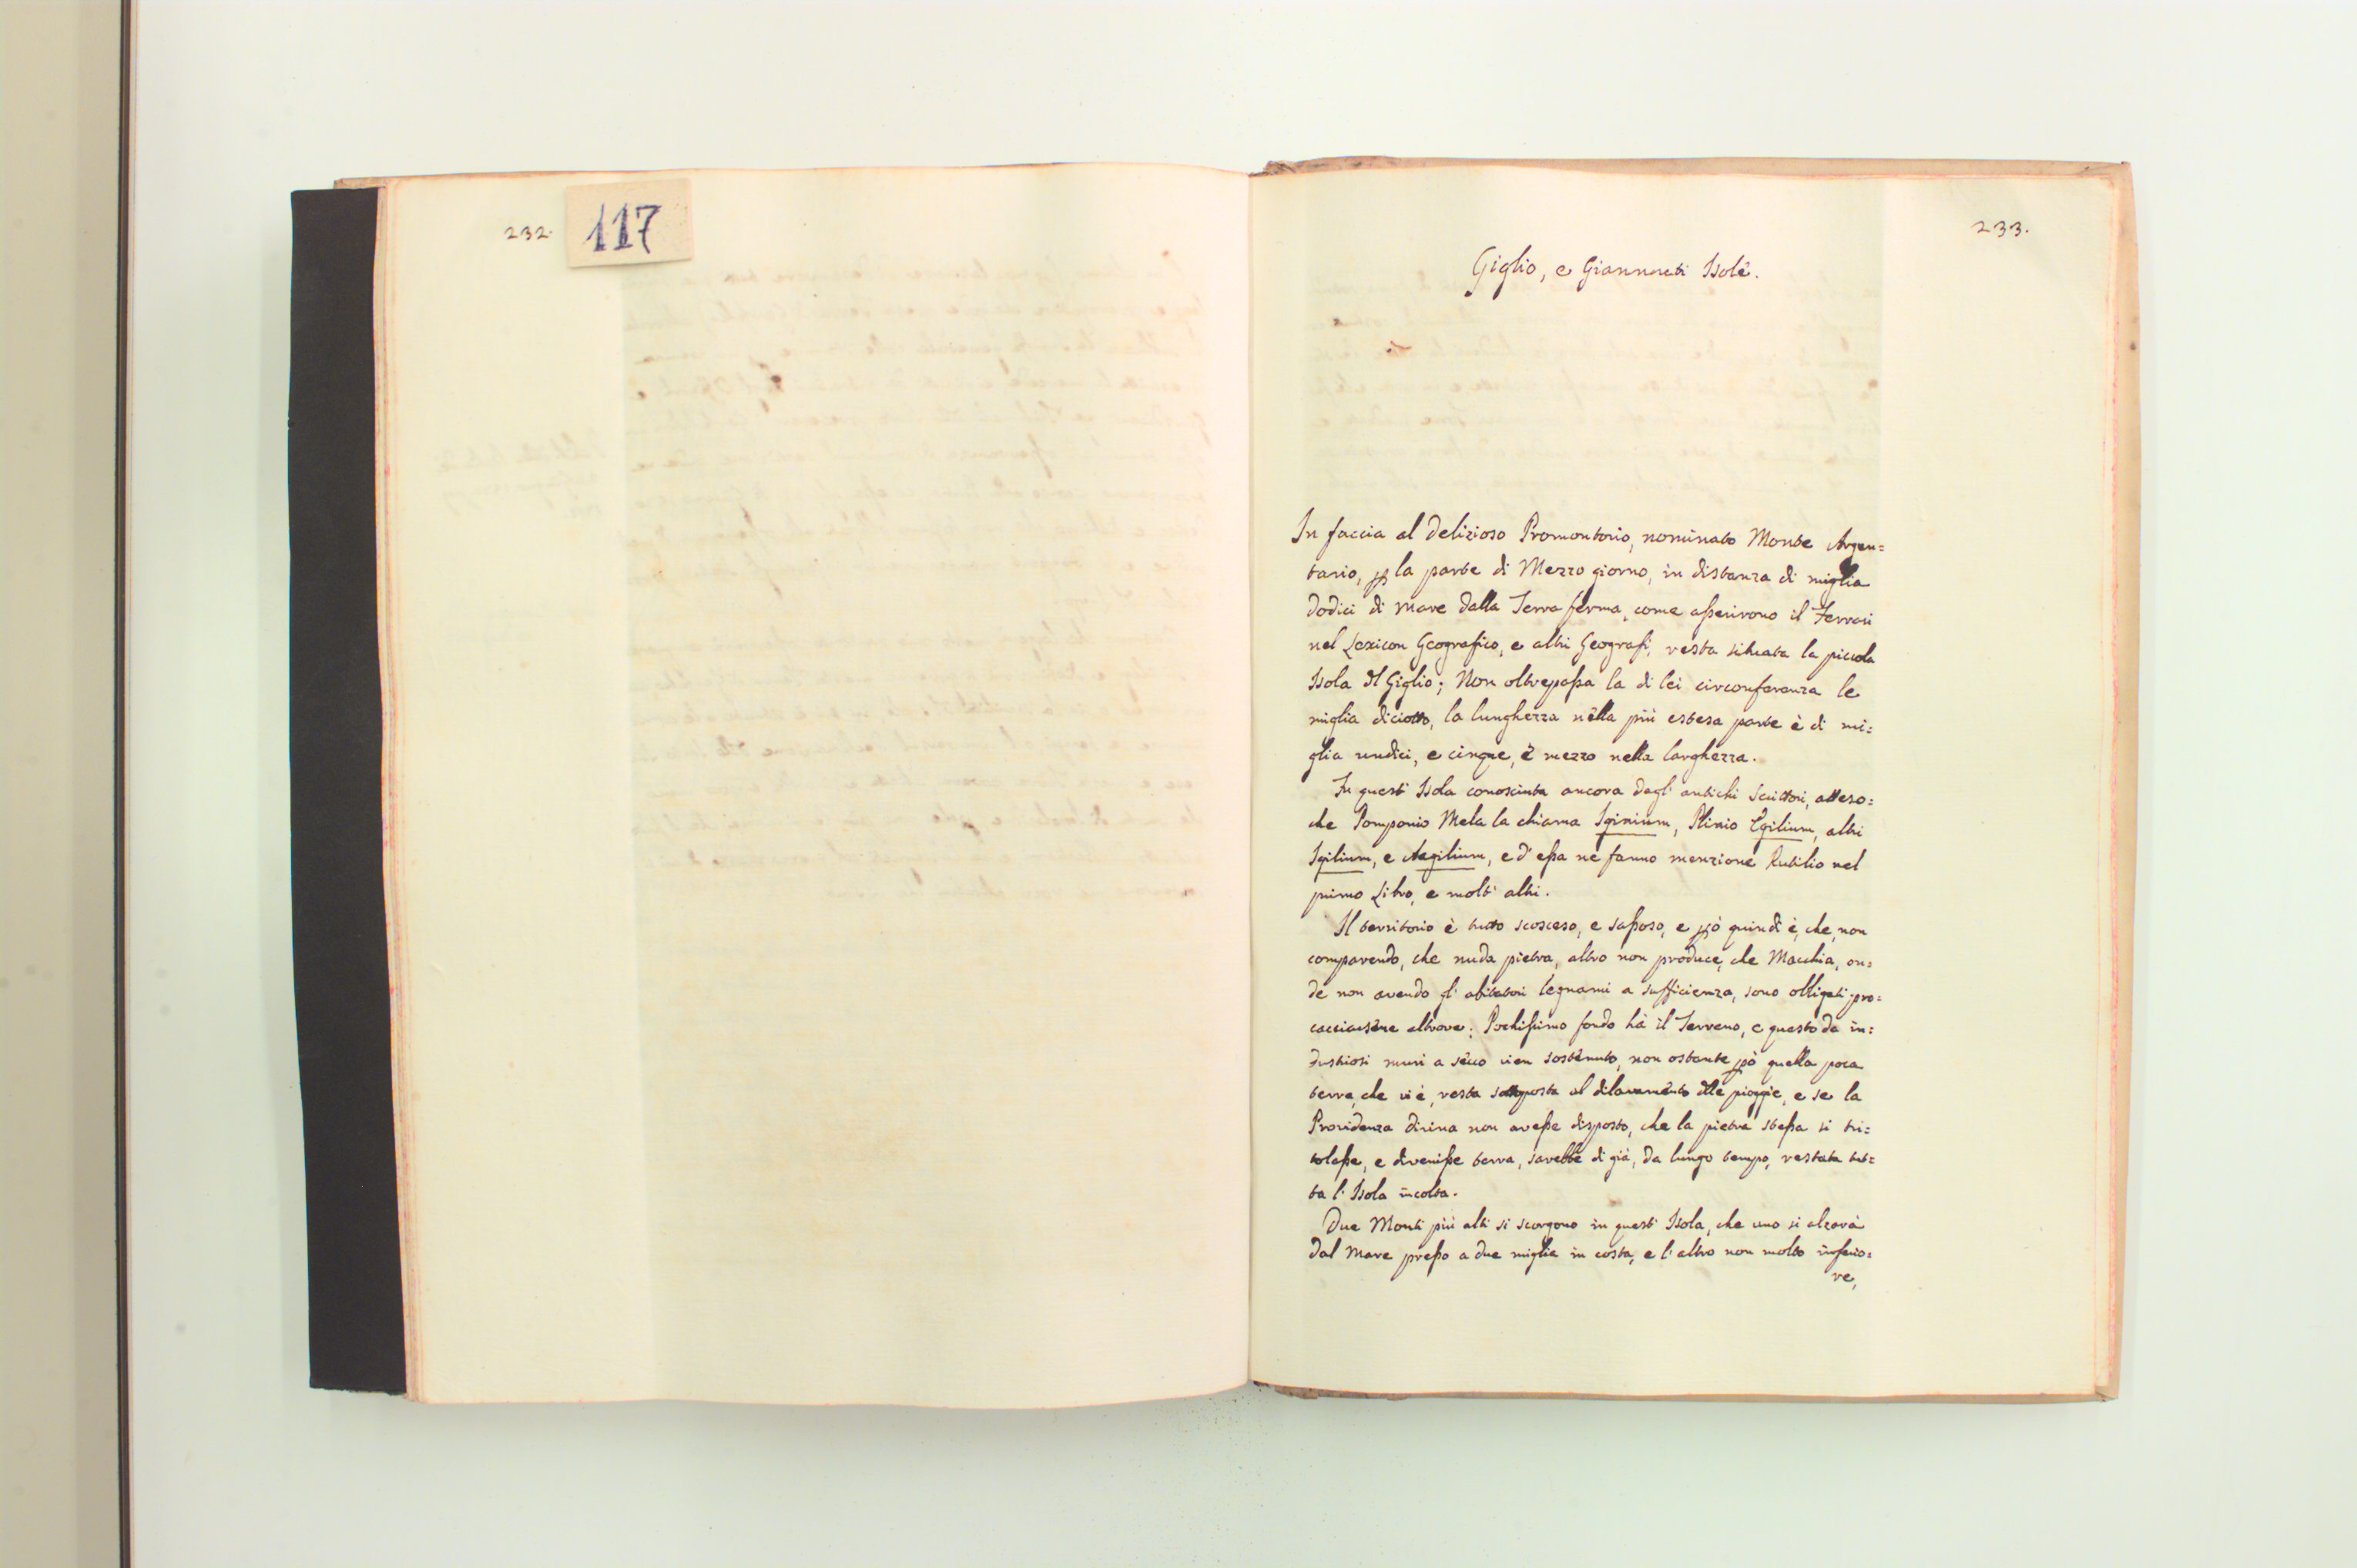 232.
117
233.
Giglio, e Giannuti Isole.
In faccia al delizioso Promontorio, nominato Monte Argen=
tario, p la parte di Mezzo giorno, in distanza di miglia
dodici di mare dalla Terra ferma, come asserirono il Ferrari
nel Lexicon Geografico, e altri Geografi, resta situata la piccola
Isola dl Giglio; Non oltrepassa la di lei circonferenza le
miglia diciotto, la lunghezza nella più estesa parte è di mi=
glia undici, e cinque, e mezzo nella larghezza.
In quest' Isola conosciuta ancora dagl' antichi Scrittori, atteso=
che Pomponio Mela la chiama Iginium, Plinio Egilium, altri
Igilium, e Aegilium, e d' essa ne fanno menzione Rutilio nel
primo Libro, e molt' altri.
Il territorio è tutto scosceso, e sassoso, e pò quindi è, che, non
comparendo, che nuda pietra, altro non produce, che Macchia, on=
de non avendo gl' abitatori legnami a sufficienza, sono obligati pro=
cacciarsene altrove. Pochissimo fondo hà il Terreno, e questo da in=
dustriosi muri a secco vien sostenuto, non ostante pò quella poca
terra, che vi è, resta sottoposta al dilavamento dlle pioggie, e se la
Providenza divina non avesse disposto, che la pietra stessa si tri=
tolasse, e divenisse terra, sarebbe di già, da lungo tempo, restata tut=
ta l' Isola incolta.
Due Monti più alti si scorgono in quest' Isola, che uno si alzarà
dal Mare presso a due miglia in costa, e l' altro non molto inferio=
re,